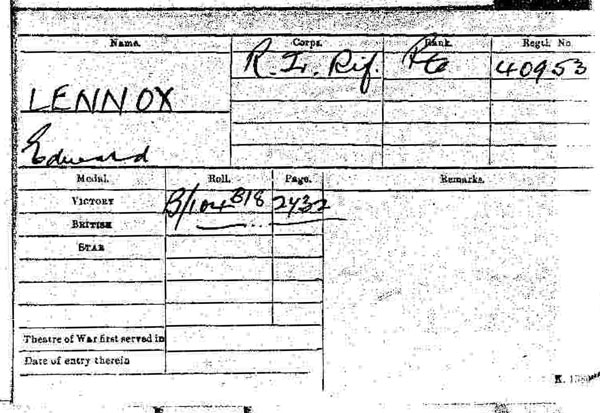 Name. Corps. Rank. Regtl. No.
R. Ir. Rif. Pte 40953
LENNOX
Edward
Medal. Roll. Page. Remarks.
VICTORY B/104 B18 2432
BRITISH
STAR
Theatre of War first served in
Date of entry therein
K. 1380